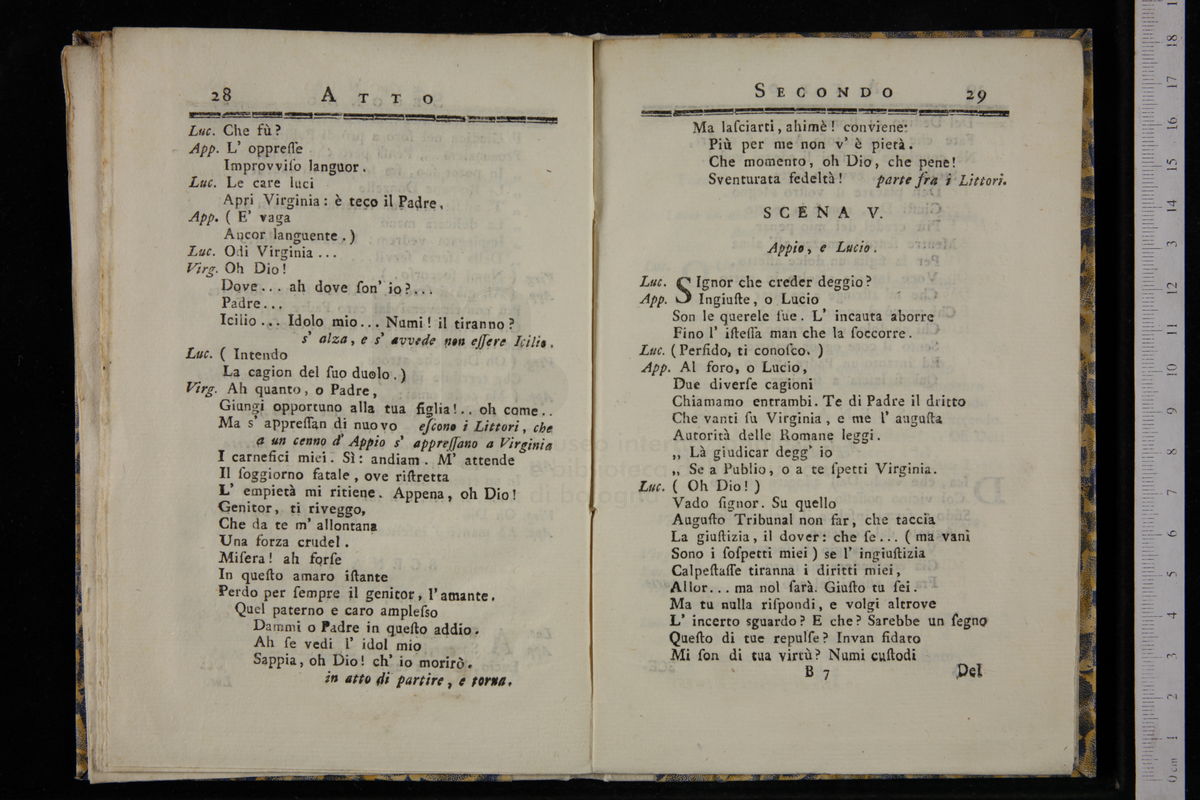 28 ATTO
Luc. Che fù?
App. L' oppreſſe
Improvviſo languor.
Luc. Le care luci
Apri Virginia: è teco il Padre,
App. ( E' vaga
Ancor languente.)
Luc. Odi Virginia...
Virg. Oh Dio!
Dove... ah dove ſon' io?...
Padre...
Icilio... Idolo mio... Numi! il tiranno?
s' alza, e s' avvede non eſſere Icilio.
Luc. ( Intendo
La cagion del ſuo duolo.)
Virg. Ah quanto, o Padre,
Giungi opportuno alla tua figlia!.. oh come..
Ma s' appreſſan di nuovo eſcono i Littori, che
a un cenno d' Appio s' appreſſano a Virginia
I carnefici miei. Sì: andiam. M' attende
Il ſoggiorno fatale, ove riſtretta
L' empietà mi ritiene. Appena, oh Dio!
Genitor, ti riveggo,
Che da te m' allontana
Una forza crudel.
Miſera! ah forſe
In queſto amaro iſtante
Perdo per ſempre il genitor, l'amante.
Quel paterno e caro ampleſso
Dammi o Padre in queſto addio.
Ah ſe vedi l' idol mio
Sappia, oh Dio! ch' io morirò.
in atto di partire, e torna.
SECONDO 29
Ma laſciarti, ahimè! conviene:
Più per me non v' è pietà.
Che momento, oh Dio, che pene!
Sventurata fedeltà! parte fra i Littori.
SCENA V.
Appio, e Lucio.
Luc. SIgnor che creder deggio?
App. Ingiuſte, o Lucio
Son le querele ſue. L' incauta aborre
Fino l' iſteſſa man che la ſoccorre.
Luc. (Perfido, ti conoſco. )
App. Al foro, o Lucio,
Due diverſe cagioni
Chiamamo entrambi. Te di Padre il dritto
Che vanti ſu Virginia, e me l' auguſta
Autorità delle Romane leggi.
„ Là giudicar degg' io
„ Se a Publio, o a te ſpetti Virginia.
Luc. ( Oh Dio! )
Vado ſignor. Su quello
Auguſto Tribunal non far, che taccia
La giuſtizia, il dover: che ſe... ( ma vani
Sono i ſoſpetti miei ) se l' ingiuſtizia
Calpeſtaſſe tiranna i diritti miei,
Allor... ma nol ſarà. Giuſto tu ſei.
Ma tu nulla riſpondi, e volgi altrove
L' incerto sguardo? E che? Sarebbe un ſegno
Queſto di tue repulſe? Invan fidato
Mi ſon di tua virtù? Numi cuſtodi
B 7 Del